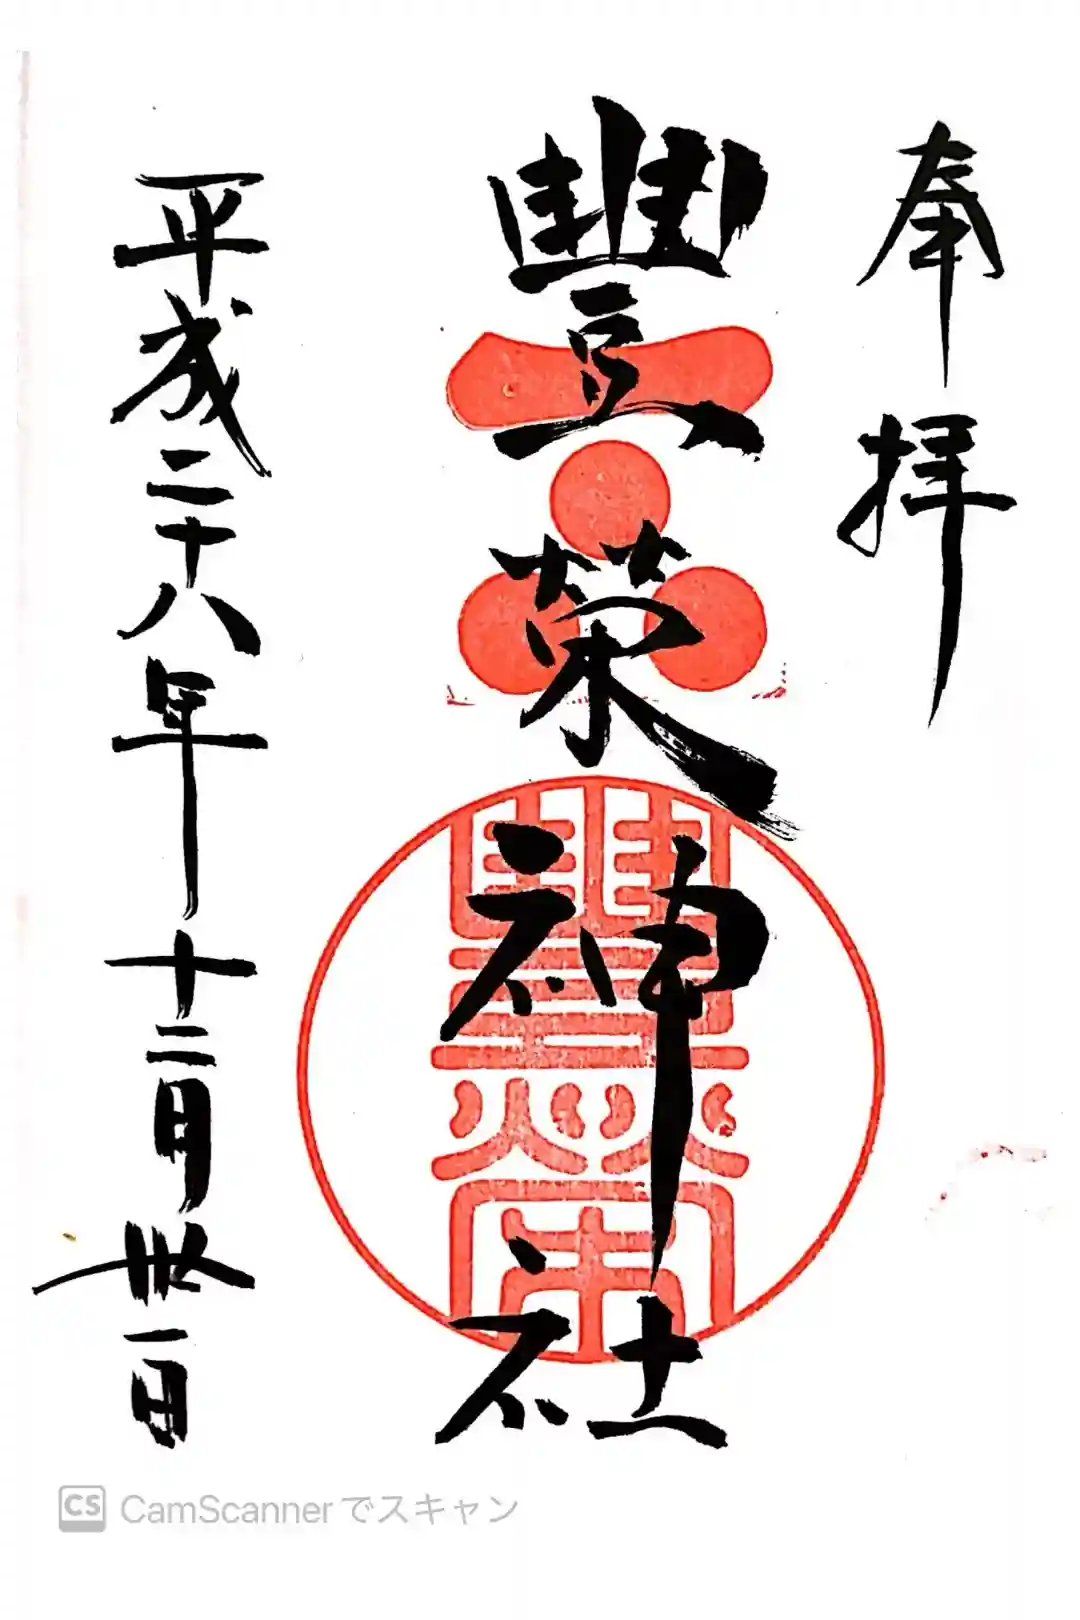 奉拝
豐榮神社
豐榮
平成二十八年十二月卅一日
CS CamScannerでスキャン